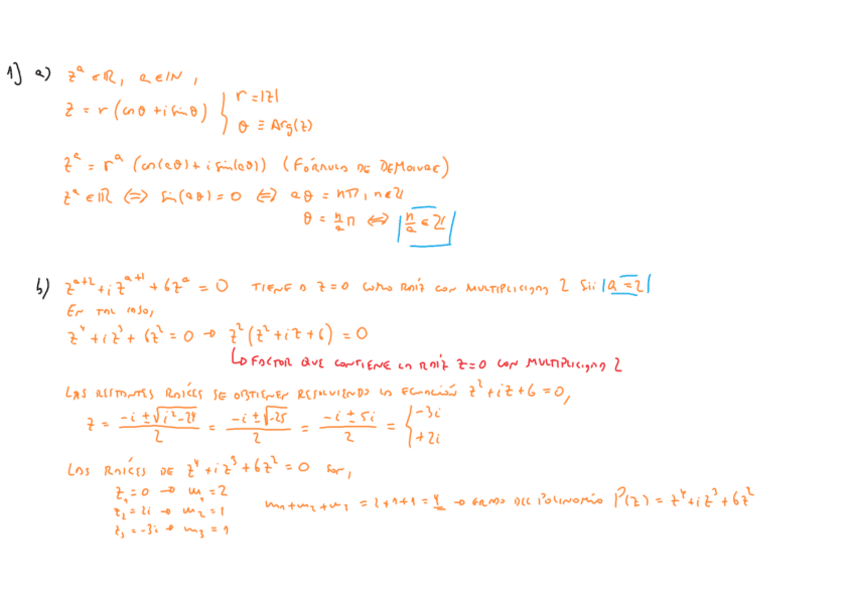 1] a) z^a ∈ ℝ, a ∈ ℕ,
z = r (cosθ + i sinθ) { r = |z|
θ ≡ Arg(z)
z^a = r^a (cos(aθ) + i sin(aθ)) (FÓRMULA DE DEMOIVRE)
z^a ∈ ℝ ⟺ sin(aθ) = 0 ⟺ aθ = nπ, n ∈ ℤ
θ = n/a π ⟺ |n/a ∈ ℤ|
b) z^{a+2} + i z^{a+1} + 6z^a = 0 TIENE A z=0 COMO RAÍZ CON MULTIPLICIDAD 2 Sii |a = 2|
EN TAL CASO,
z^4 + i z^3 + 6z^2 = 0 → z^2 (z^2 + iz + 6) = 0
↳ FACTOR QUE CONTIENE LA RAÍZ z=0 CON MULTIPLICIDAD 2
LAS RESTANTES RAÍCES SE OBTIENEN RESOLVIENDO LA ECUACIÓN z^2 + iz + 6 = 0,
z = (-i ± √(i^2 - 24))/2 = (-i ± √-25)/2 = (-i ± 5i)/2 = { -3i
+2i
LAS RAÍCES DE z^4 + i z^3 + 6z^2 = 0 SON,
z_1 = 0 → m_1 = 2
z_2 = 2i → m_2 = 1 m_1 + m_2 + m_3 = 2+1+1 = 4 → GRADO DEL POLINOMIO P(z) = z^4 + i z^3 + 6z^2
z_3 = -3i → m_3 = 1